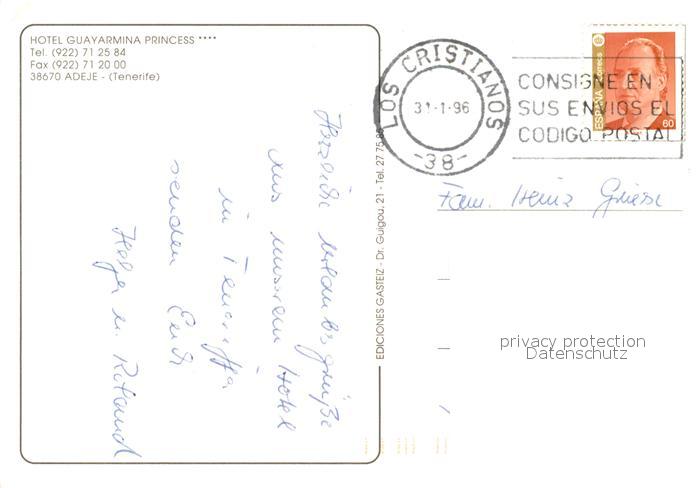 HOTEL GUAYARMINA PRINCESS ****
Tel. (922) 71 25 84
Fax (922) 71 20 00
38670 ADEJE - (Tenerife)
LOS CRISTIANOS
31-1-96
-38-
CONSIGNE EN
SUS ENVIOS EL
CODIGO POSTAL
ESPAÑA correos
60
Herzliche Urlaubsgrüße
aus unserem Hotel
in Teneriffa
senden Euch
Helga u. Roland
EDICIONES GASTEIZ - Dr. Guigou, 21 - Tel. 27 75 86
Fam. Heinz Griese
privacy protection
Datenschutz